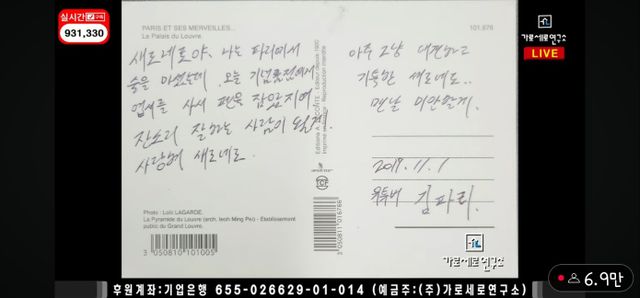 실시간
931,330
PARIS ET SES MERVEILLES...
Le Palais du Louvre.
101.876
가로세로연구소
LIVE
새로네로야, 나는 파리에서
술을 마셨는데 오늘 기념품점에서
엽서를 사서 펜을 잡았지여
잔소리 잘하는 사람이 될게.
사랑해 새로네로.
아주 그냥 대견하고
기특한 새로네로..
맨날 미안할게.
2017.11.1
유튜버 김파리.
Photo : Loïc LAGARDE.
La Pyramide du Louvre (arch. Ieoh Ming Pei) - Etablissement
public du Grand Louvre.
3 050810 101005
3 050811 016766
가로세로연구소
6.9만
후원계좌:기업은행 655-026629-01-014 (예금주:(주)가로세로연구소)